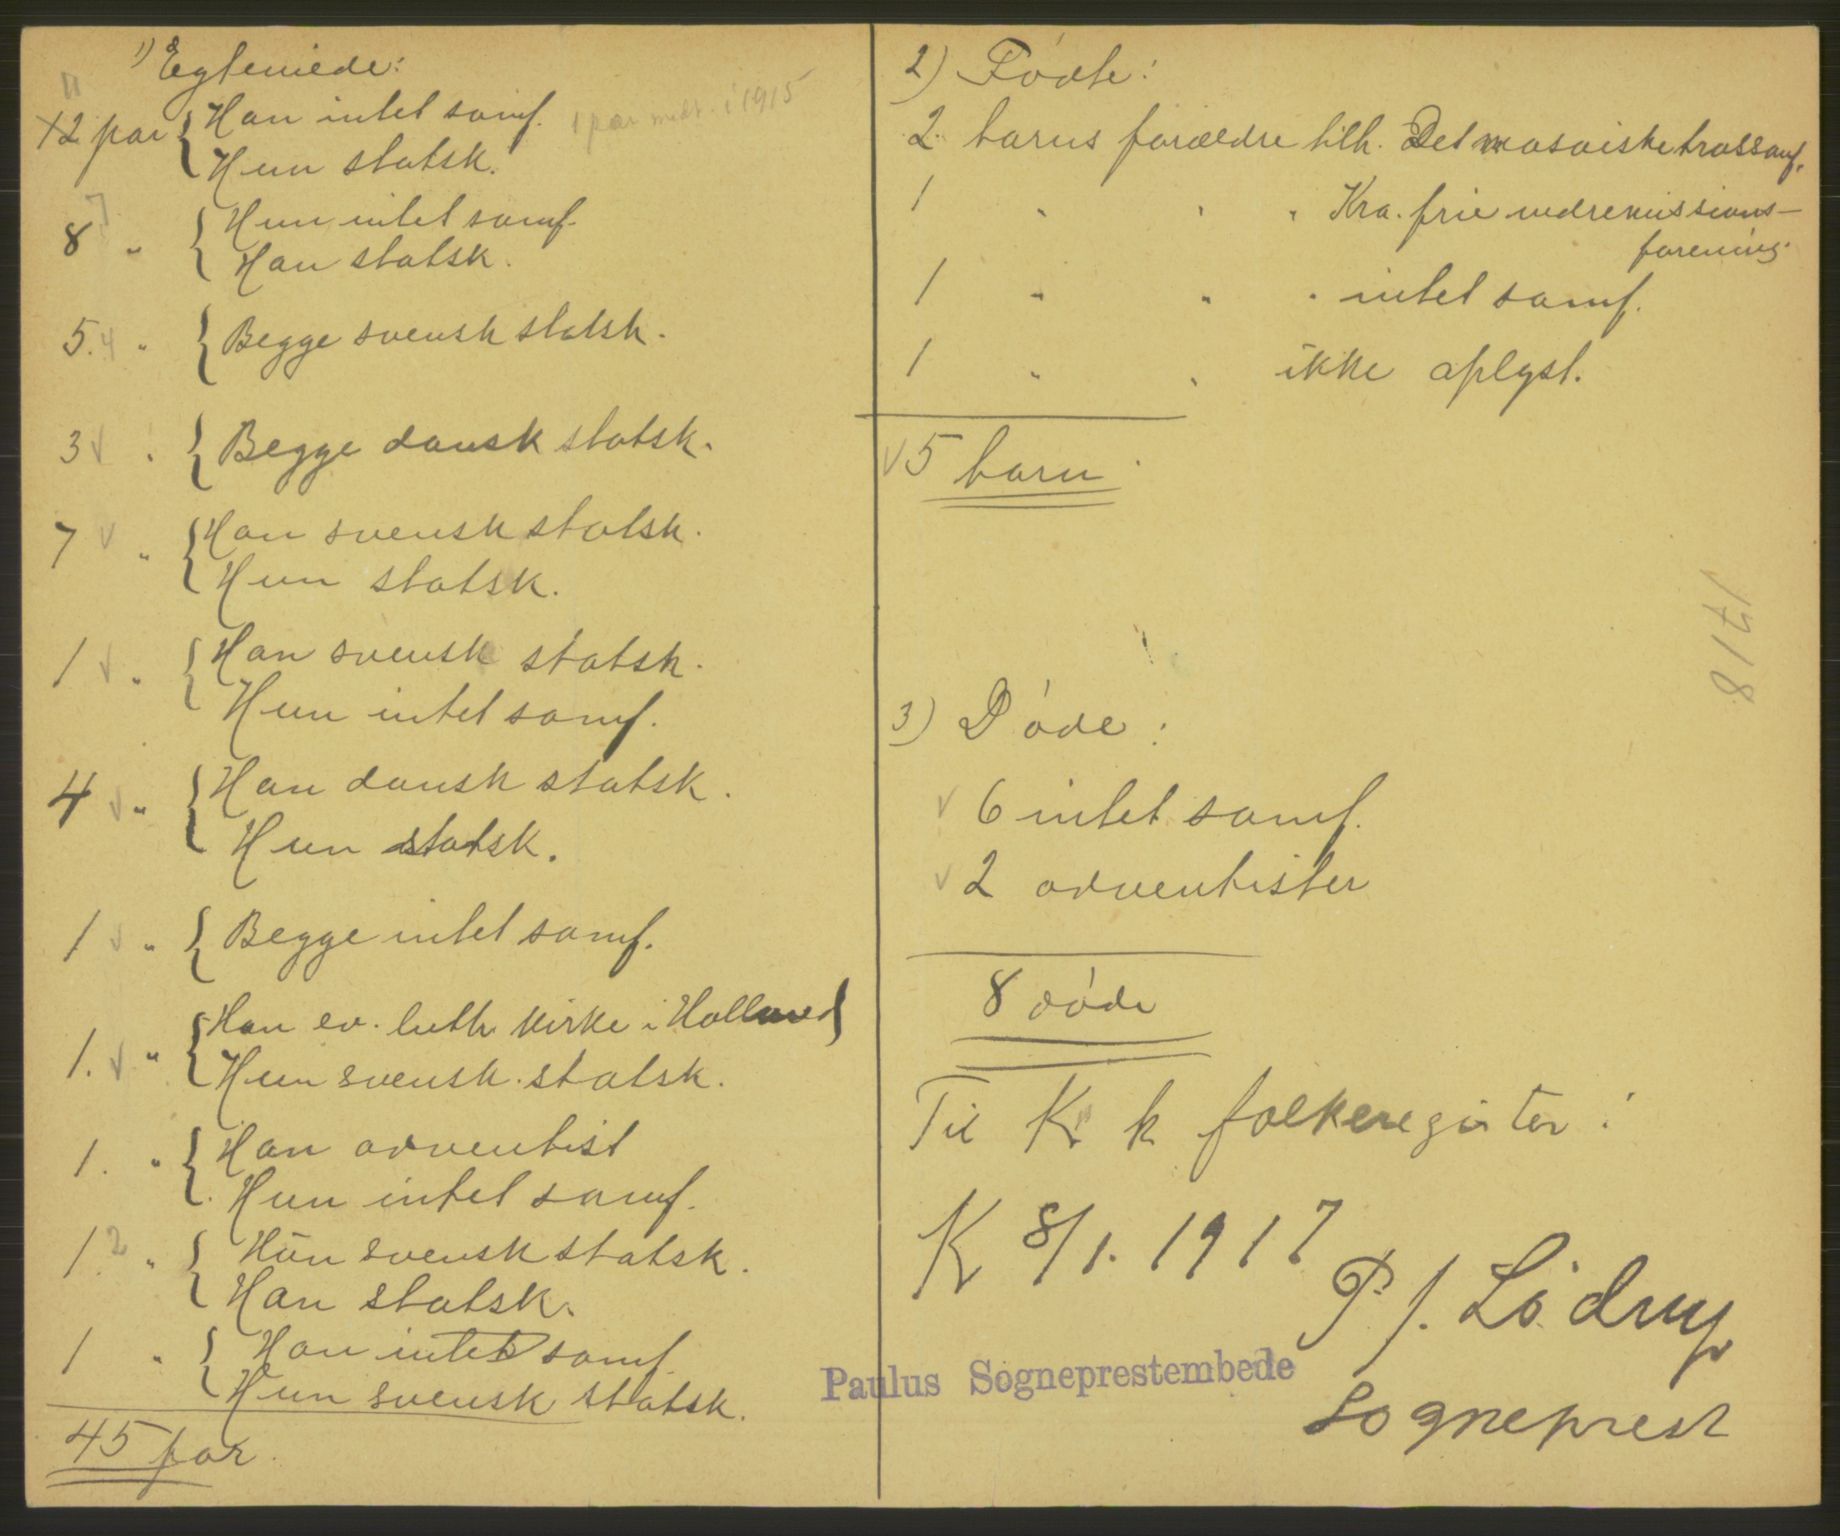 1) Egteviede:
11
12 par { Han intet samf. 1 par medt. i 1915
Hun statsk.
8 7 " { Hun intet samf.
Han statsk.
5. 4 " { Begge svensk statsk.
3 √ " { Begge dansk statsk.
7 √ " { Han svensk statsk.
Hun statsk.
1 √ " { Han svensk statsk.
Hun intet samf.
4 √ " { Han dansk statsk.
Hun statsk.
1 √ " { Begge intet samf.
1. √ " { Han ev. luth kirke i Holland }
Hun svensk. statsk.
1. " { Han adventist
Hun intet samf.
1. 2 " { Hun svensk statsk.
Han statsk.
1 " { Han intet samf.
Hun svensk statsk.
45 par.
2) Fødte:
2 barns forældre tilh. Det mosaiske trossamf.
1 " " " Kra. frie indremissions-
forening.
1 " " " intet samf.
1 " " ikke oplyst.
√ 5 barn
3) Døde:
√ 6 intet samf.
√ 2 adventister
8 døde
Til Kr k folkeregister:
K 8/1. 1917
P. J. Lødrup
Paulus Sogneprestembede
Sogneprest
1718